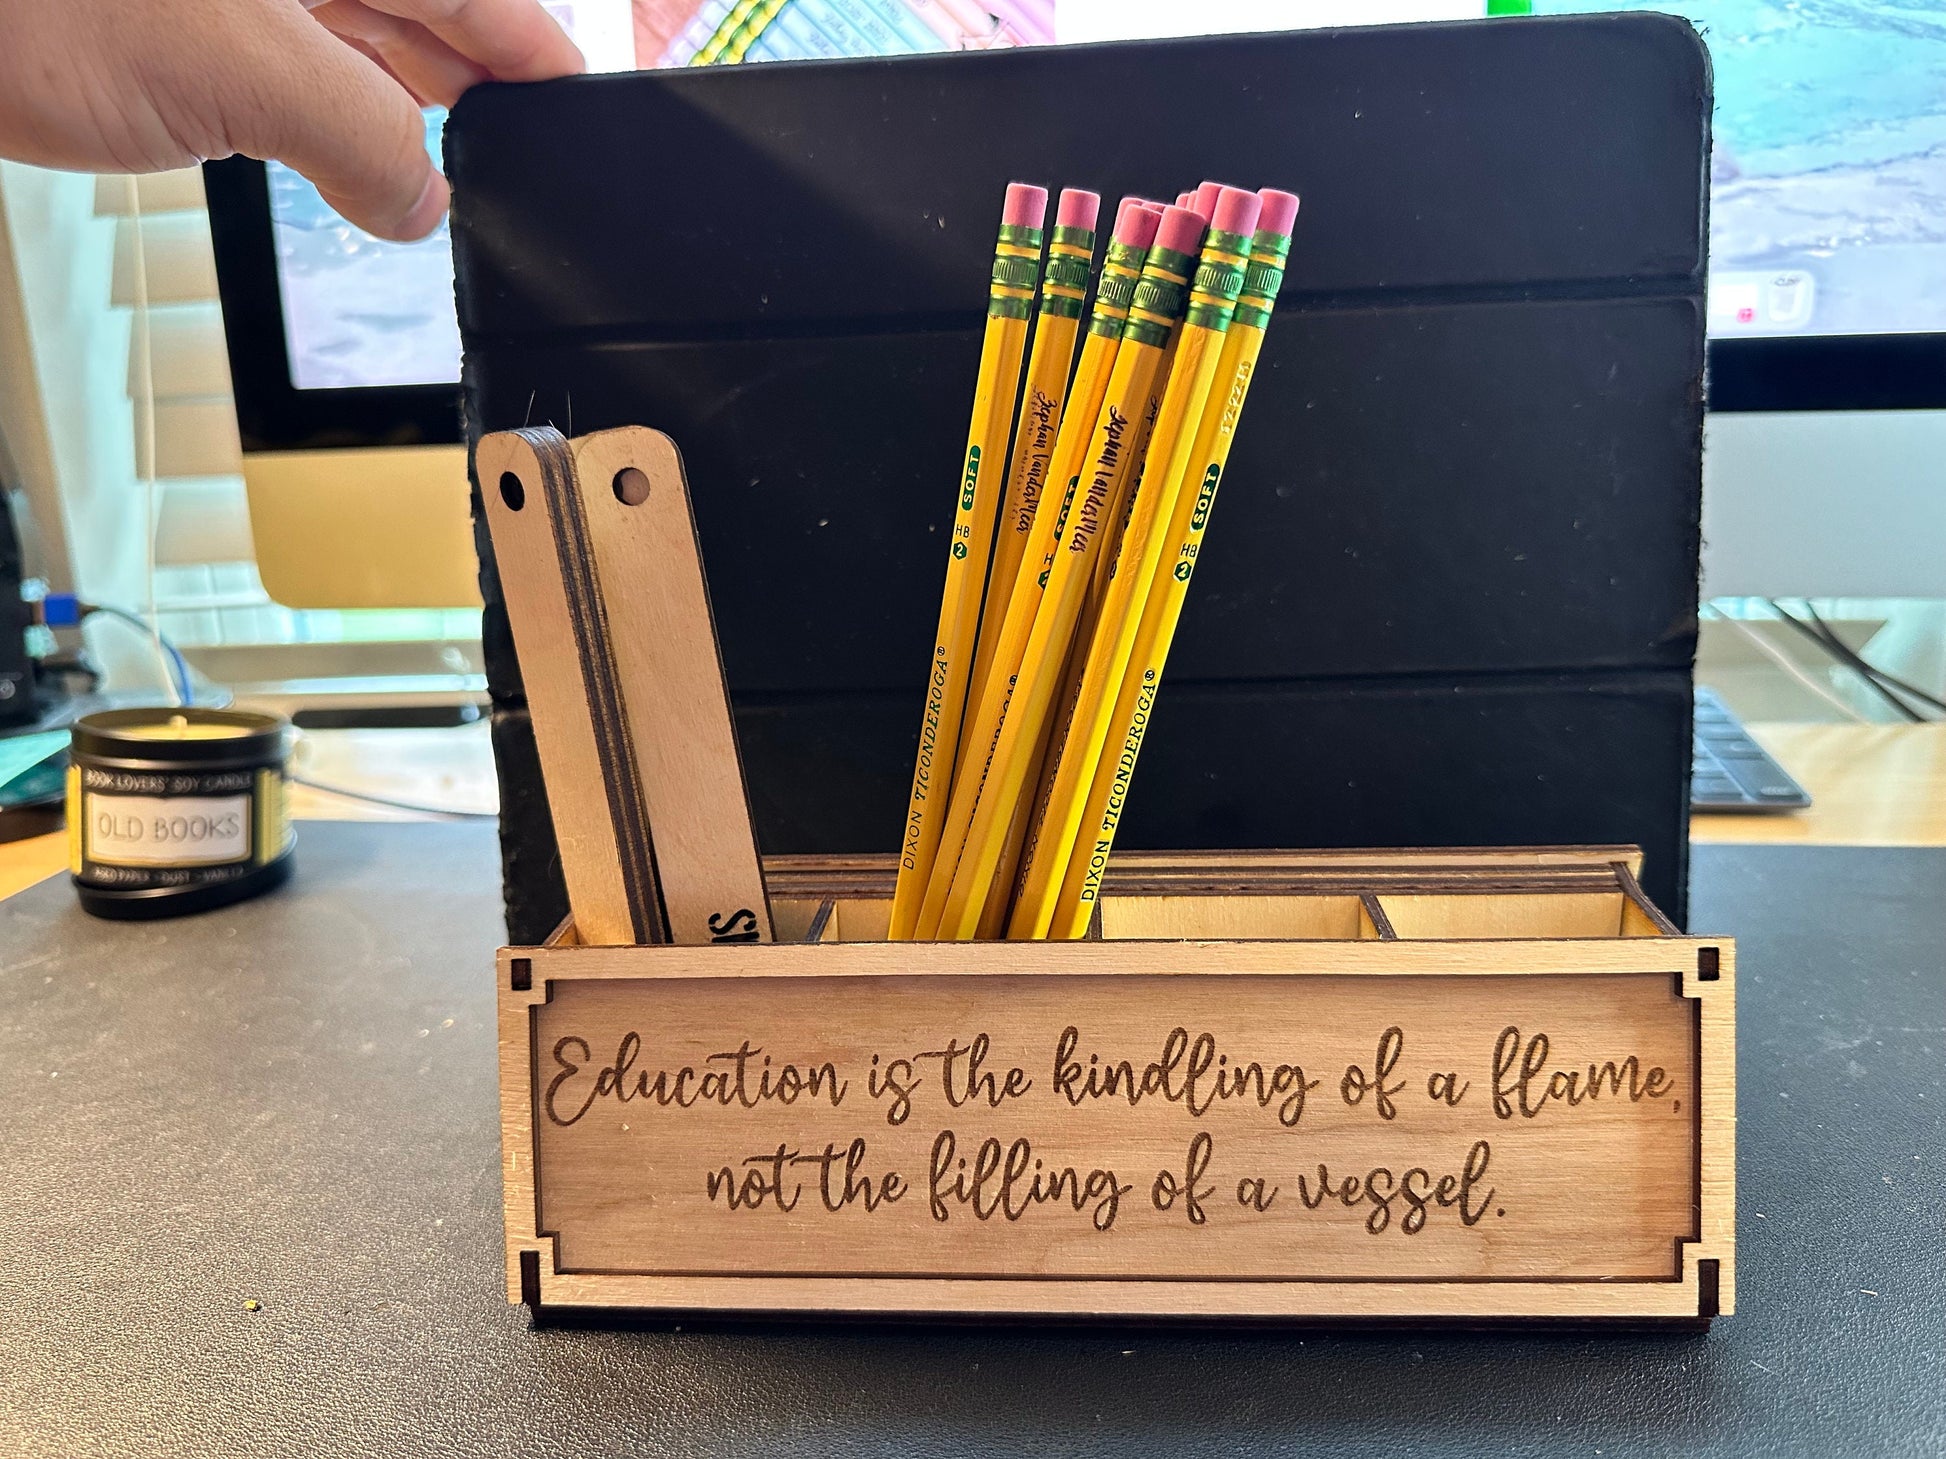 BOOK LOVERS' SOY CANDLE
OLD BOOKS
SOFT
HB
2
DIXON TICONDEROGA®
SOFT
HB
2
DIXON TICONDEROGA®
Education is the kindling of a flame,
not the filling of a vessel.